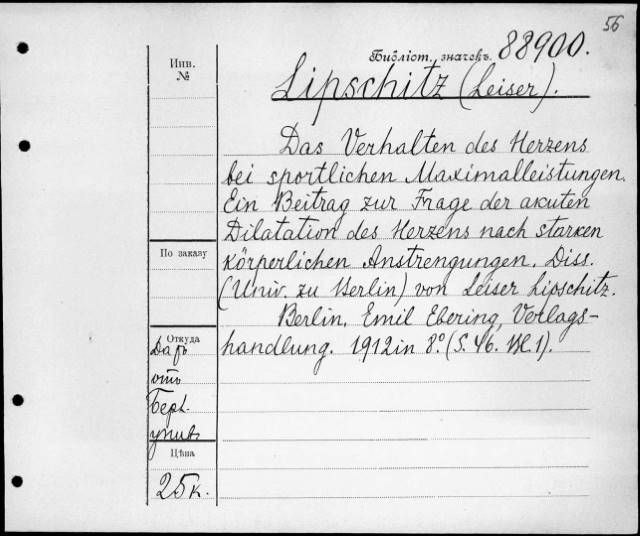 56
Библіот. значекъ. 88900.
Инв.
№
Lipschitz (Leiser).
Das Verhalten des Herzens
bei sportlichen Maximalleistungen.
Ein Beitrag zur Frage der akuten
Dilatation des Herzens nach starken
körperlichen Anstrengungen. Diss.
(Univ. zu Berlin) von Leiser Lipschitz.
Berlin, Emil Ebering, Verlags-
handlung. 1912 in 8° (S. 46. Bl. 1).
По заказу
Откуда
Даръ
отъ
Берл.
унив.
Цѣна
25к.